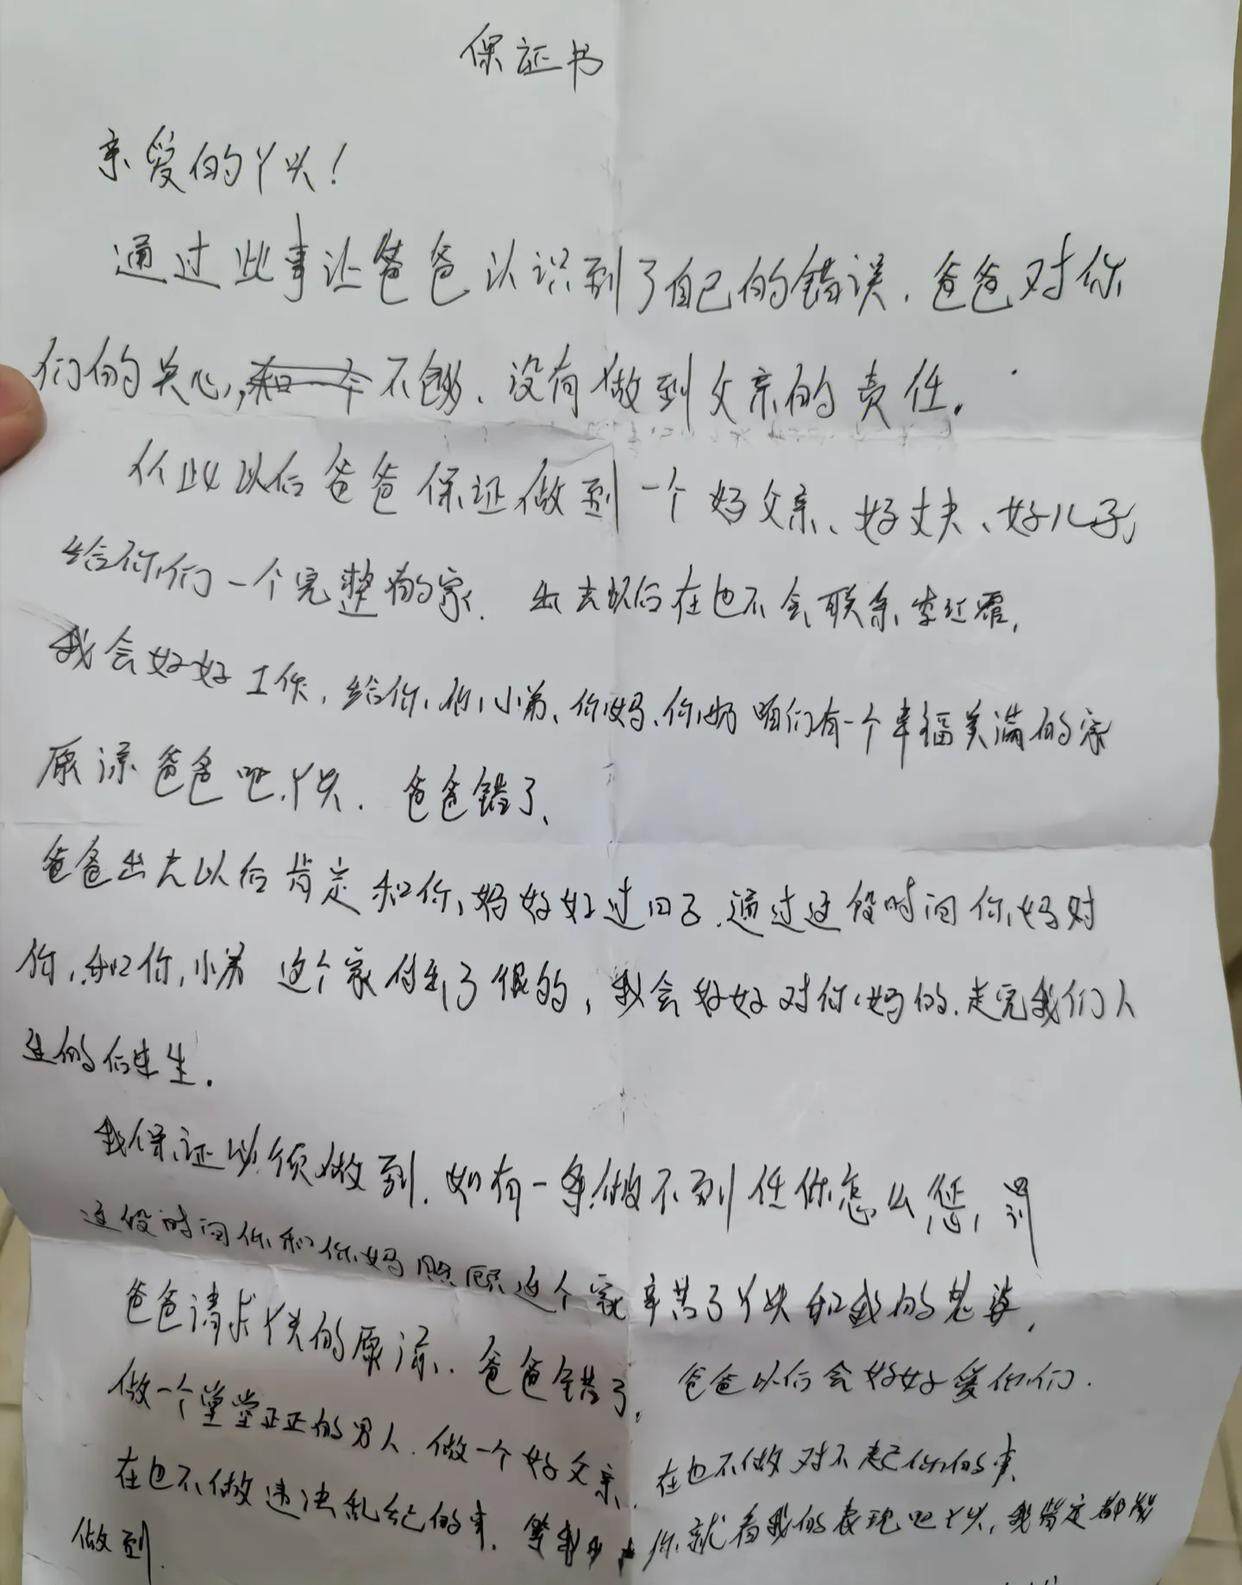 保证书
亲爱的丫头！
通过此事让爸爸认识到了自己的错误，爸爸对你
们的关心，不够，没有做到父亲的责任。
从此以后爸爸保证做到一个好父亲、好丈夫、好儿子，
给你们一个完整的家，出去以后在也不会联系李红霞，
我会好好工作，给你，你小弟、你妈、你奶咱们有一个幸福美满的家
原谅爸爸吧，丫头，爸爸错了、
爸爸出去以后肯定和你妈好好过日子，通过这段时间你妈对
你，和你小弟这个家付出了很的，我会好好对你妈的，走完我们人
生的后生。
我保证必须做到，如有一条做不到任你怎么惩，罚
这段时间你和你妈照顾这个家辛苦了丫头和我的老婆，
爸爸请求丫头的原谅，爸爸错了，爸爸以后会好好爱你们．
做一个堂堂正正的男人，做一个好父亲，在也不做对不起你们的事，
在也不做违法乱纪的事，等我出，你就看我的表现吧丫头，我肯定都能
做到．